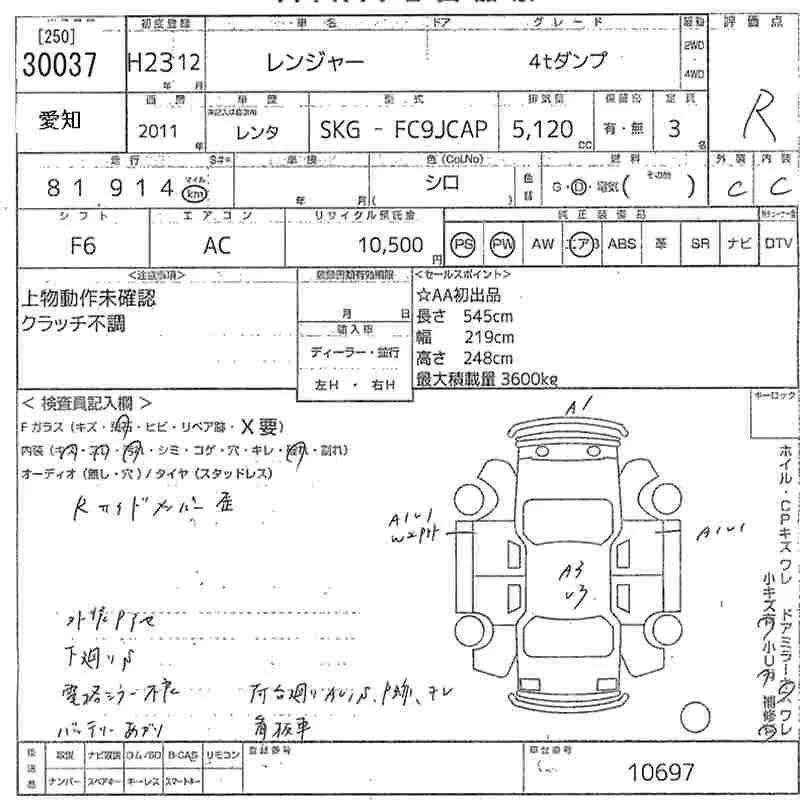 初度登録 車名 ドア グレード 評価点
[250]
30037 H23 12 レンジャー 4tダンプ 2WD 4WD R
年 月
愛知 車歴 型式 排気量 定員
2011 年 レンタ SKG - FC9JCAP 5,120 CC 有・無 3 名
走行 車検 色(Col.No) 色替 燃料 外装 内装
81 914 マイル km 年 月 シロ ( ) G・D・電気( その他 ) C C
シフト エアコン リサイクル預託金 純正装備品
F6 AC 10,500 円 PS PW AW エアB ABS 革 SR ナビ DTV
<注意事項> <セールスポイント>
上物動作未確認
クラッチ不調
月 日
輸入車
ディーラー・並行
左H ・ 右H
☆AA初出品
長さ 545cm
幅 219cm
高さ 248cm
最大積載量 3600kg
キーロック
< 検査員記入欄 >
Fガラス(キズ・飛石・ヒビ・リペア跡・X要)
・シミ・コゲ・穴・キレ・破れ・割れ)
オーディオ(無し・穴)/タイヤ(スタッドレス)
Rサイドメンバー歪
A1
A1U1
W2P1
A1U1
A3
U3
下廻りS
バッテリーあがり
ホイル・CPキズワレ ドアミラーキズワレ
小キズ有 小U有 補修有
後送品 取説 ナビ取説 B-CAS リモコン 登録番号 車台番号
ナンバー スペアキー キーレス スマートキー 10697